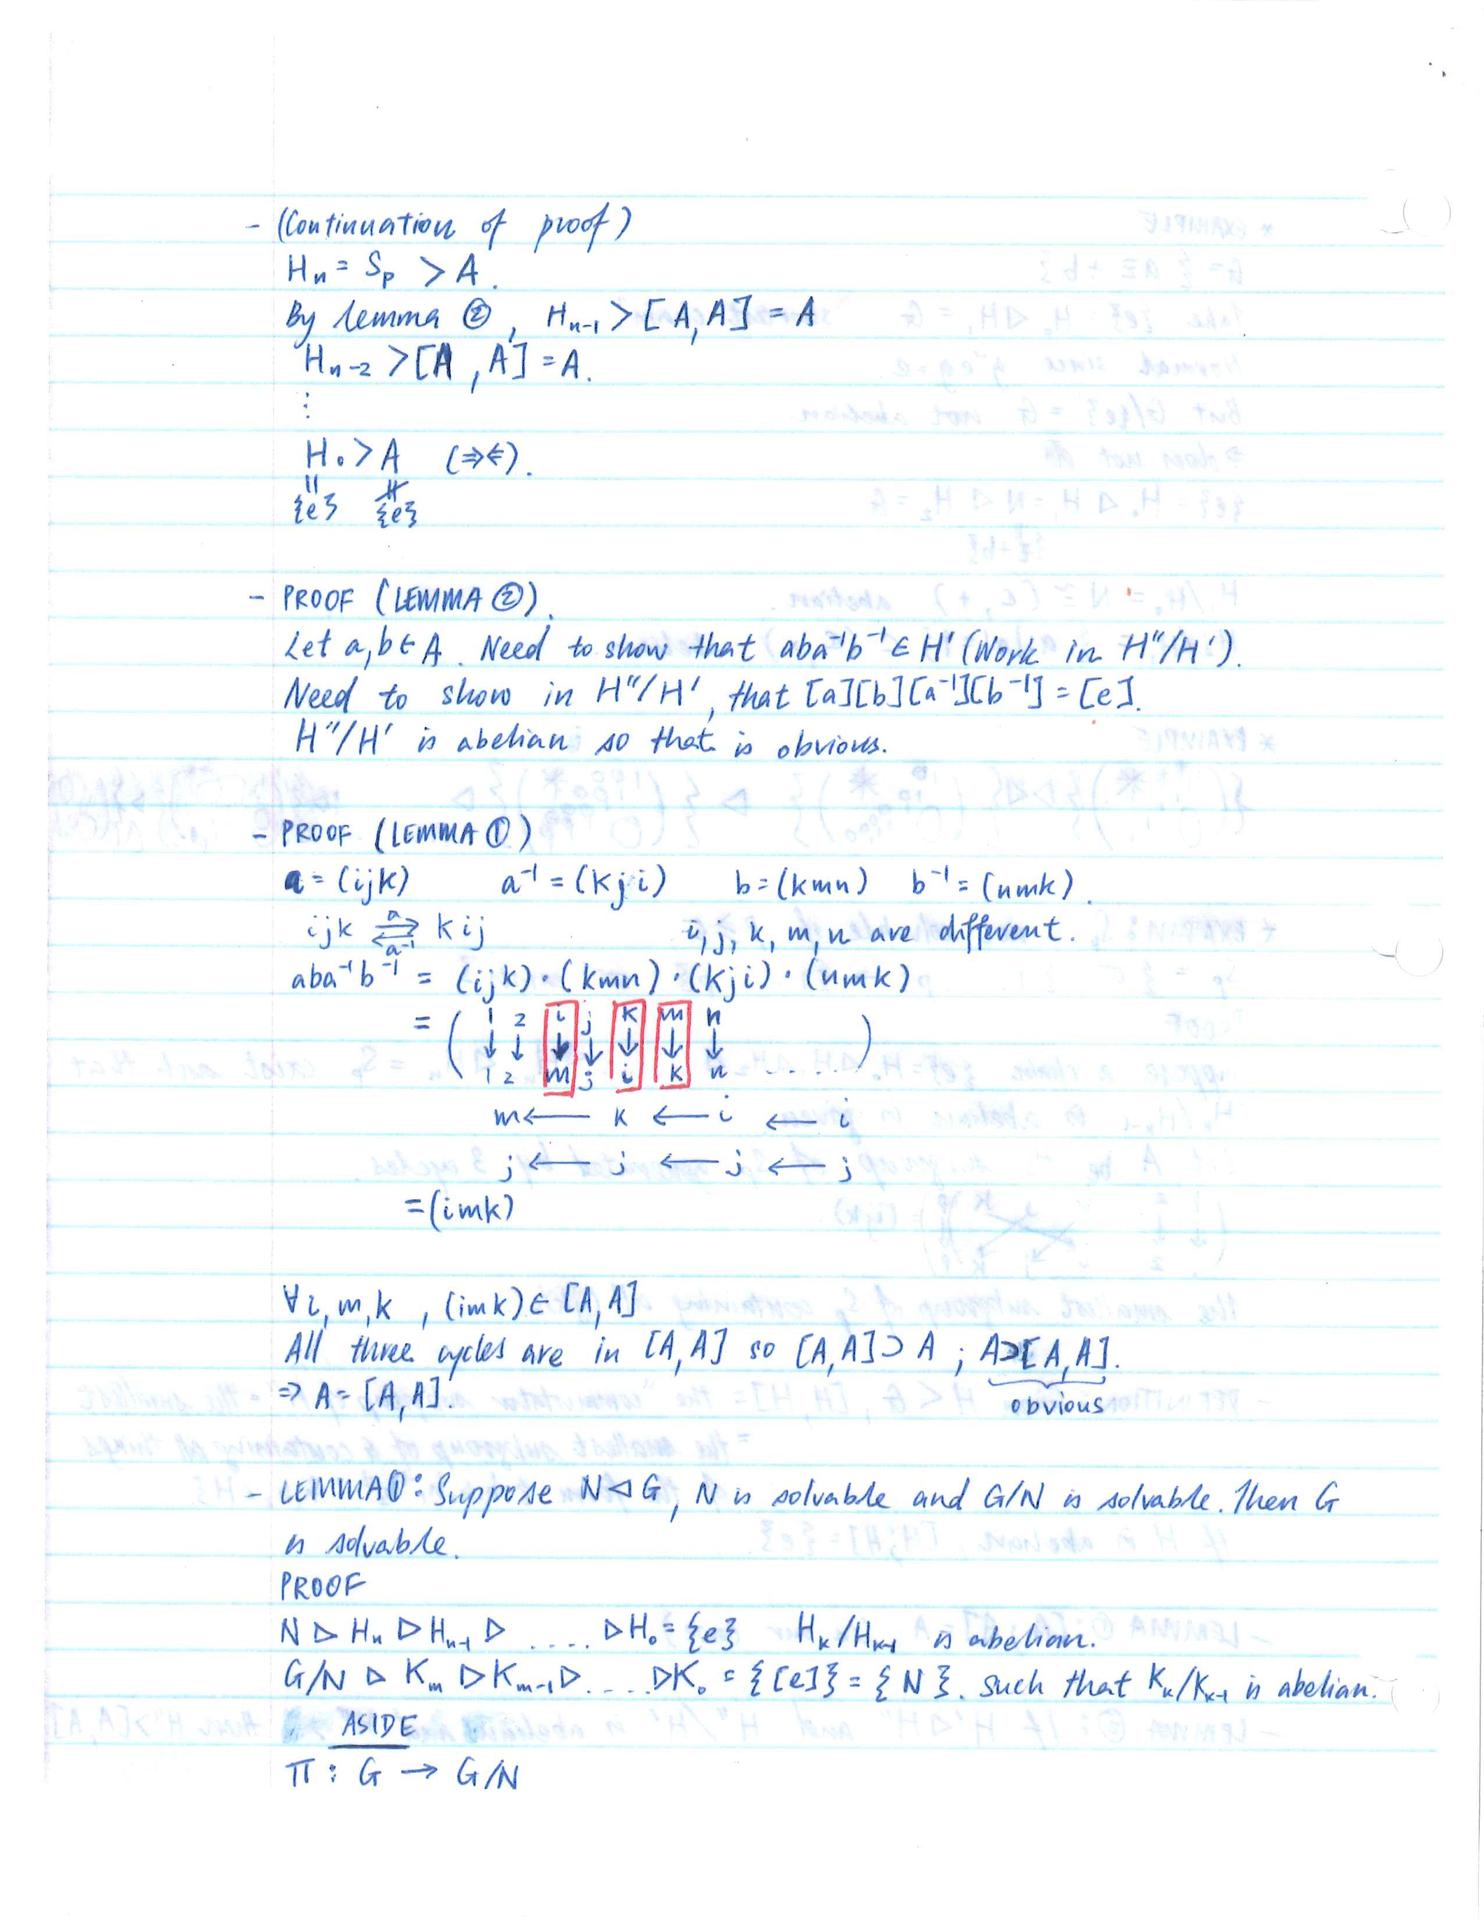 - (Continuation of proof)
Hn = Sp > A.
By lemma ②, Hn-1 > [A, A] = A
Hn-2 > [A, A] = A.
⋮
H₀ > A (⇒⇐).
|| ≠
{e} {e}
- PROOF (LEMMA ②).
Let a, b ∈ A. Need to show that aba⁻¹b⁻¹ ∈ H' (Work in H''/H').
Need to show in H''/H', that [a][b][a⁻¹][b⁻¹] = [e].
H''/H' is abelian so that is obvious.
- PROOF (LEMMA ①)
a = (ijk) a⁻¹ = (kji) b = (kmn) b⁻¹ = (nmk).
ijk ⇄ kij i, j, k, m, n are different.
a
a⁻¹
aba⁻¹b⁻¹ = (ijk)·(kmn)·(kji)·(nmk)
= ( 1 2 i j k m n )
↓ ↓ ↓ ↓ ↓ ↓ ↓
1 2 m j i k n ....
m ← k ← i ← i
j ← j ← j ← j
= (imk)
∀ i, m, k, (imk) ∈ [A, A]
All three cycles are in [A, A] so [A, A] ⊃ A ; A ⊃ [A, A].
⇒ A = [A, A]. obvious
- LEMMA ①: Suppose N ◁ G, N is solvable and G/N is solvable. Then G
is solvable.
PROOF
N ▷ Hn ▷ Hn-1 ▷ .... ▷ H₀ = {e} Hk/Hk-1 is abelian.
G/N ▷ Km ▷ Km-1 ▷ .... ▷ K₀ = {[e]} = {N}. such that Kk/Kk-1 is abelian.
ASIDE
π : G → G/N